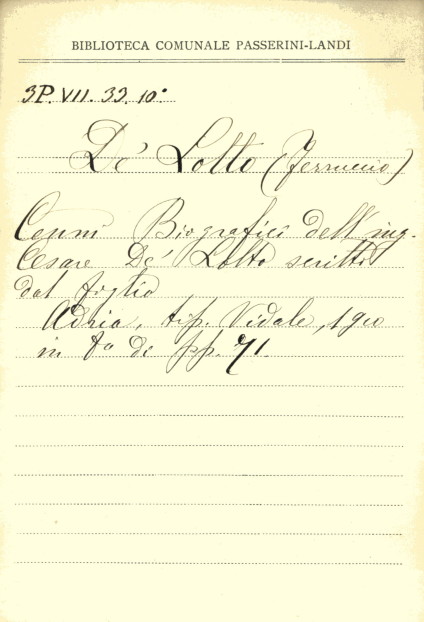 BIBLIOTECA COMUNALE PASSERINI-LANDI
3P. VII. 33. 10°
De' Lotto (Ferruccio)
Cenni Biografici dell'ing.
Cesare De' Lotto scritti
dal figlio
Adria, tip. Vidale, 1910
in 8° di pp. 71.